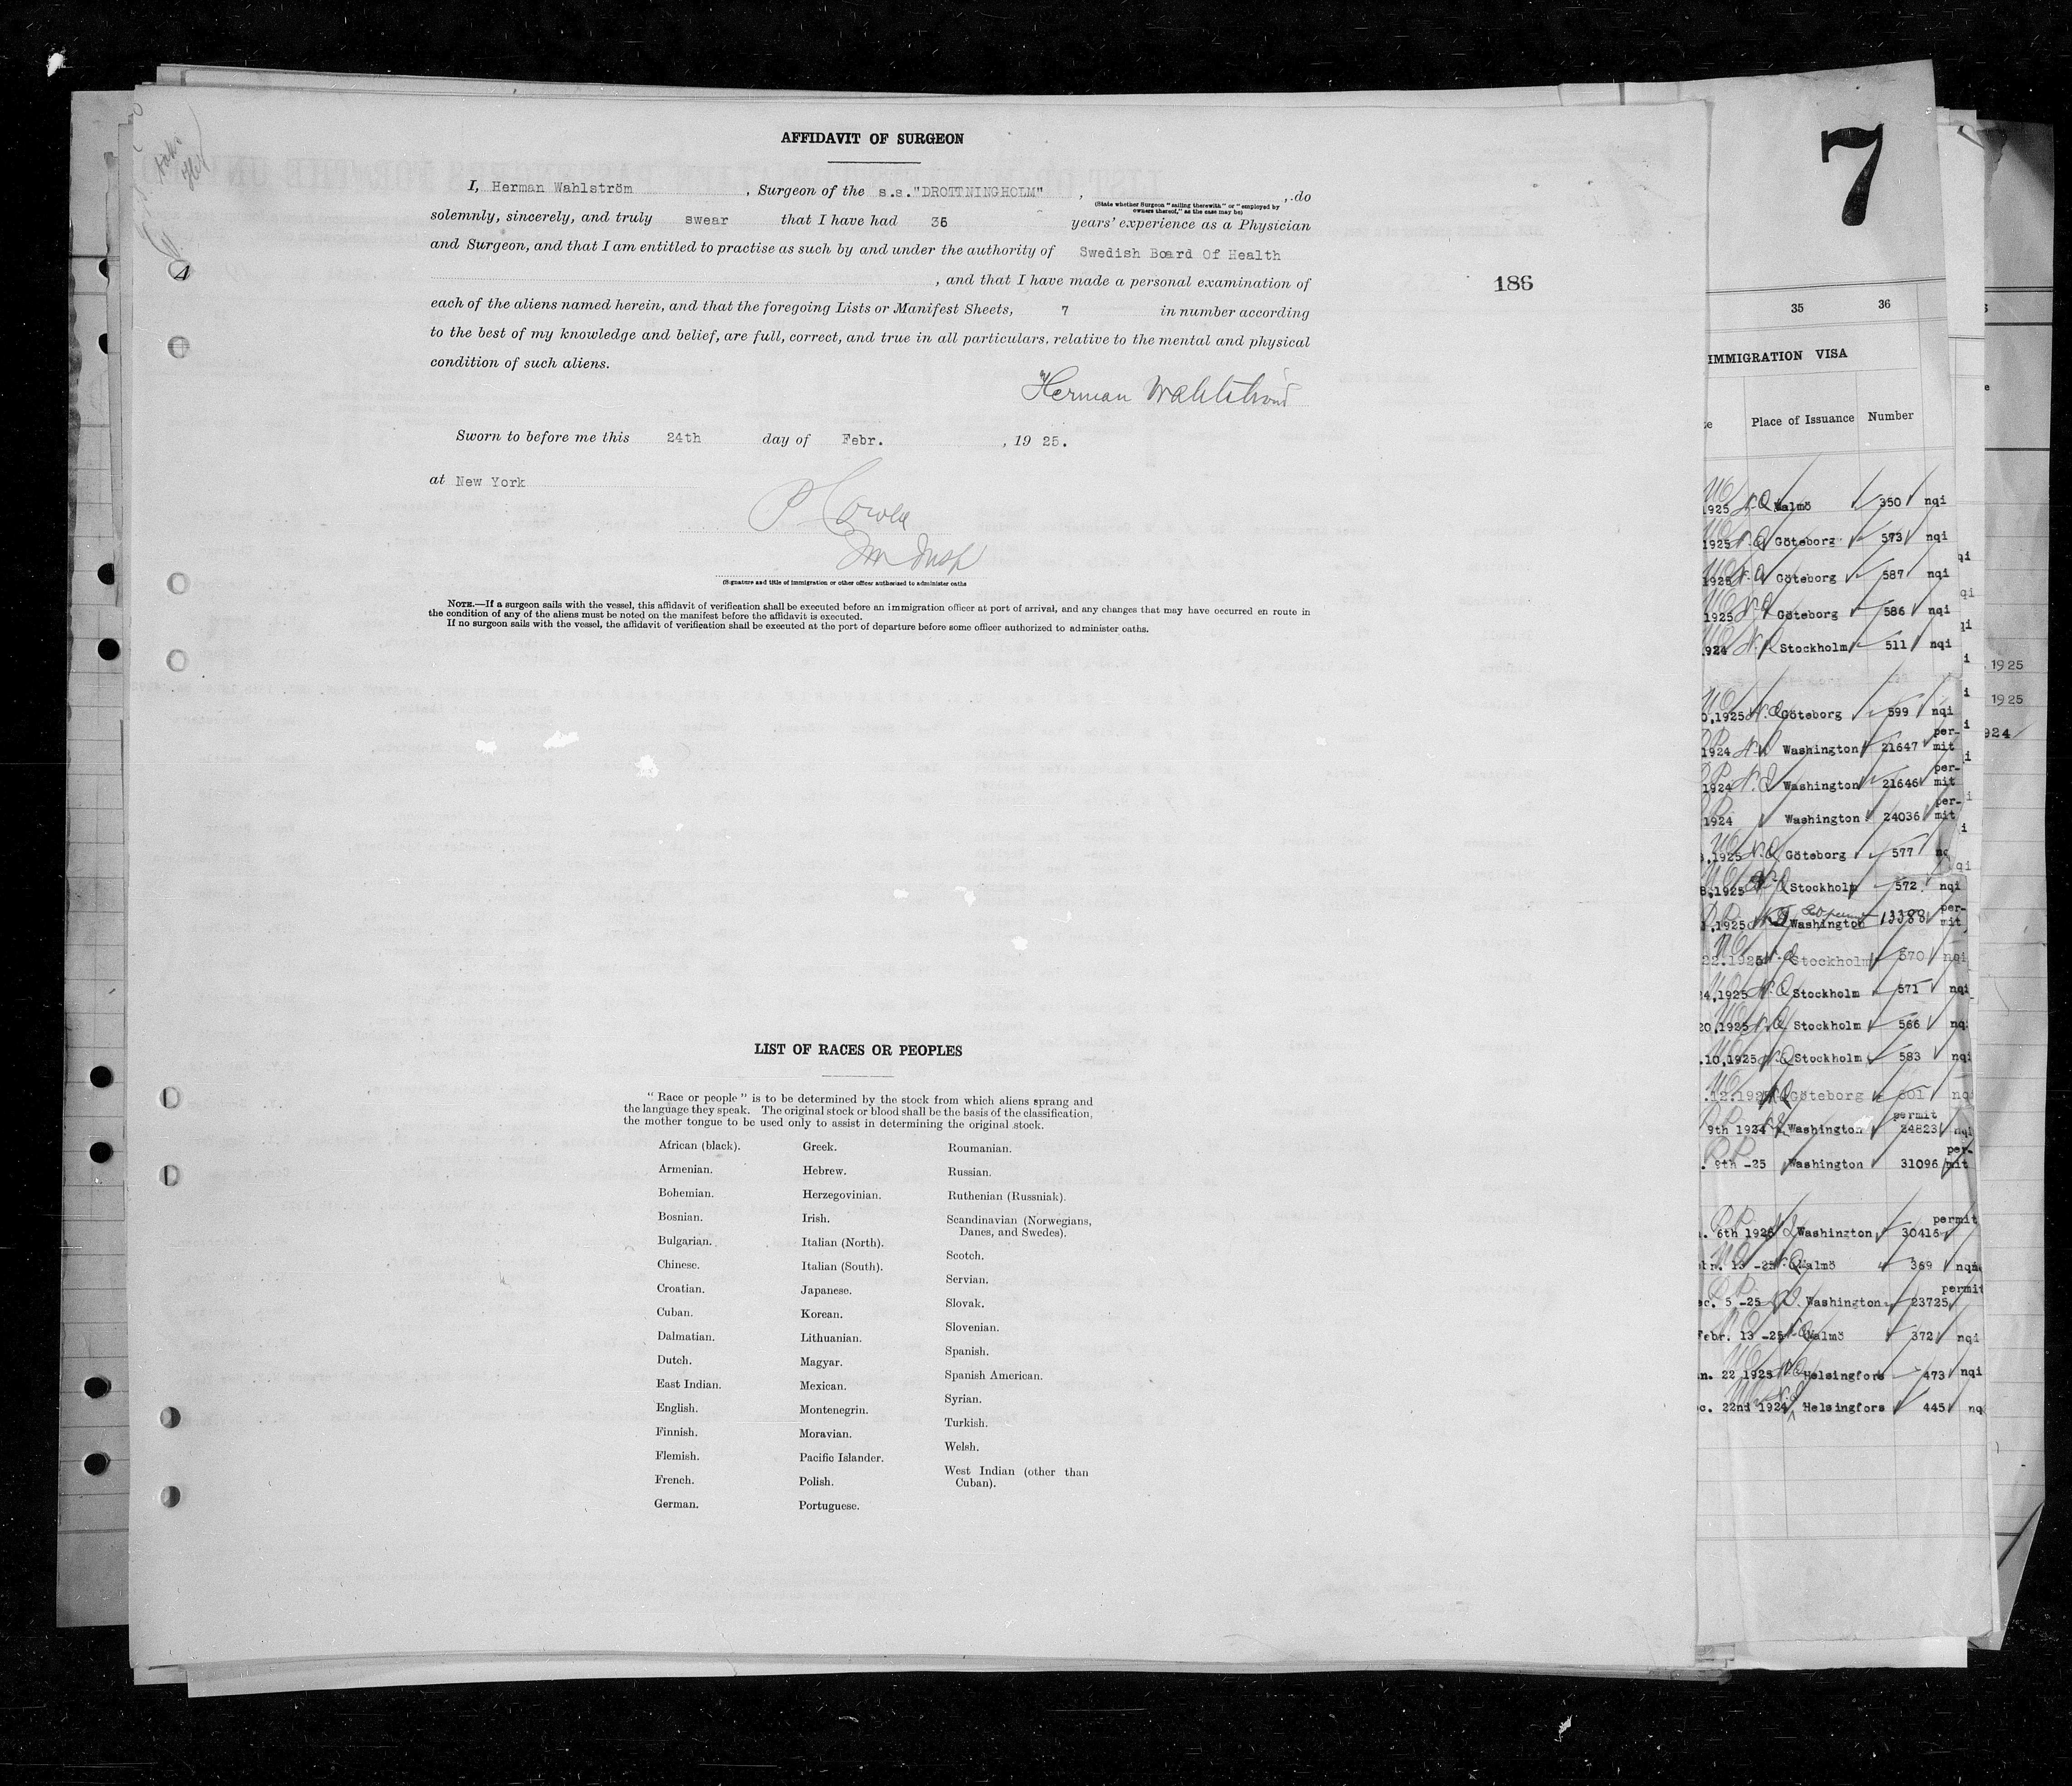 AFFIDAVIT OF SURGEON
I, Herman Wahlström, Surgeon of the s.s."DROTTNINGHOLM", , do
(State whether Surgeon "sailing therewith" or "employed by
owners thereof," as the case may be)
solemnly, sincerely, and truly swear that I have had 36 years' experience as a Physician
and Surgeon, and that I am entitled to practise as such by and under the authority of Swedish Board Of Health
, and that I have made a personal examination of
each of the aliens named herein, and that the foregoing Lists or Manifest Sheets, 7 in number according
to the best of my knowledge and belief, are full, correct, and true in all particulars, relative to the mental and physical
condition of such aliens.
Herman Wahlström
Sworn to before me this 24th day of Febr. , 19 25.
at New York
(Signature and title of immigration or other officer authorized to administer oaths
NOTE.—If a surgeon sails with the vessel, this affidavit of verification shall be executed before an immigration officer at port of arrival, and any changes that may have occurred en route in
the condition of any of the aliens must be noted on the manifest before the affidavit is executed.
If no surgeon sails with the vessel, the affidavit of verification shall be executed at the port of departure before some officer authorized to administer oaths.
186
LIST OF RACES OR PEOPLES
"Race or people" is to be determined by the stock from which aliens sprang and
the language they speak. The original stock or blood shall be the basis of the classification,
the mother tongue to be used only to assist in determining the original stock.
African (black).
Armenian.
Bohemian.
Bosnian.
Bulgarian.
Chinese.
Croatian.
Cuban.
Dalmatian.
Dutch.
East Indian.
English.
Finnish.
Flemish.
French.
German.
Greek.
Hebrew.
Herzegovinian.
Irish.
Italian (North).
Italian (South).
Japanese.
Korean.
Lithuanian.
Magyar.
Mexican.
Montenegrin.
Moravian.
Pacific Islander.
Polish.
Portuguese.
Roumanian.
Russian.
Ruthenian (Russniak).
Scandinavian (Norwegians,
Danes, and Swedes).
Scotch.
Servian.
Slovak.
Slovenian.
Spanish.
Spanish American.
Syrian.
Turkish.
Welsh.
West Indian (other than
Cuban).
7
35 36
IMMIGRATION VISA
Place of Issuance Number
1925 Malmö 350 nqi
1925 Göteborg 573 nqi
1925 Göteborg 587 nqi
1925 Göteborg 586 nqi
1924 Stockholm 511 nqi
0,1925 Göteborg 599 nqi
1924 Washington 21647 per-mit
1924 Washington 21646 per-mit
1924 Washington 24036 per-mit
,1925 Göteborg 577 nq
8,1925 Stockholm 572 nqi
,1925 Washington 13388 per-mit
22.1925 Stockholm 570 nqi
24,1925 Stockholm 571 nqi
20,1925 Stockholm 566 nqi
.10,1925 Stockholm 583 nqi
.12.1925 Göteborg 601 nq
9th 1924 Washington permit 24823 nqi
. 9th -25 Washington 31096 per-mit
. 6th 1925 Washington 30416 permit
. 13 -25 Malmö 369 nqi
c. 5 -25 Washington 23725 permit
Febr. 13 -25 Malmö 372 nqi
n. 22 1925 Helsingfors 473 nqi
c. 22nd 1924 Helsingfors 445 nq
1925
1925
924